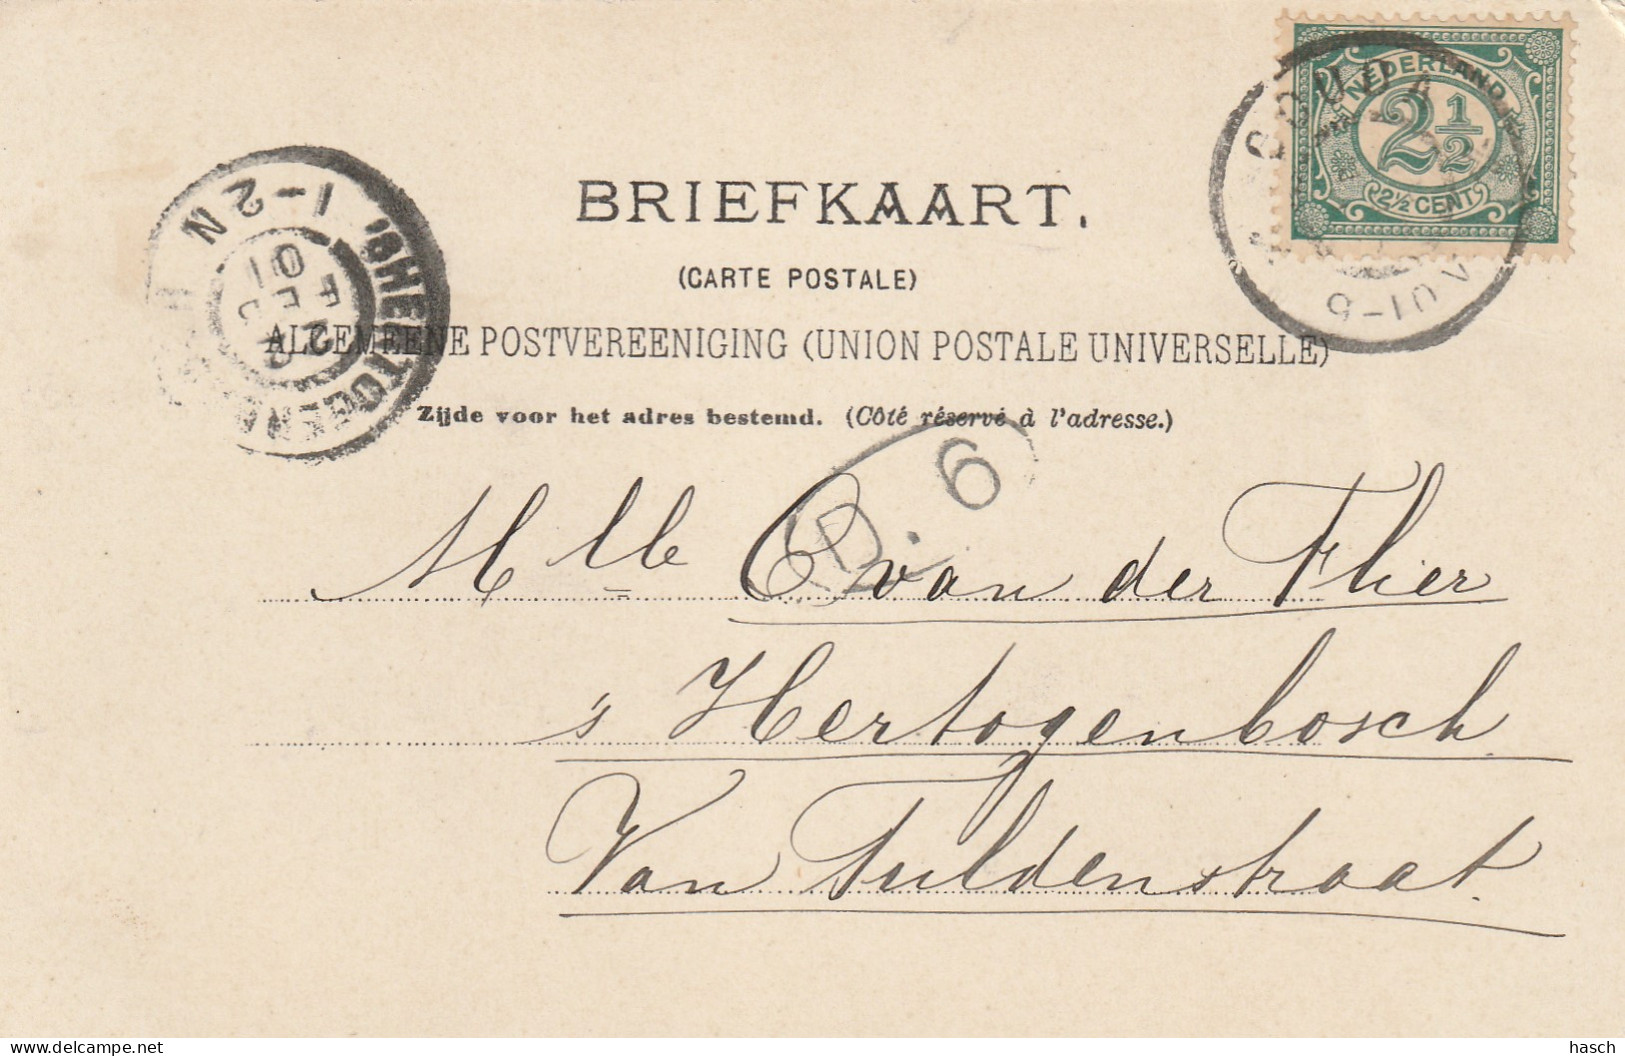 NEDERLAND
2½
2½ CENT
GOUDA
6-10V
'SHERTOGENB
1-2N
FEB
01
BRIEFKAART.
(CARTE POSTALE)
ALGEMEENE POSTVEREENIGING (UNION POSTALE UNIVERSELLE)
Zijde voor het adres bestemd. (Côté réservé à l'adresse.)
D. 6
Mlle C van der Flier
's Hertogenbosch
Van Tuldenstraat.
Delcampe.net
hasch